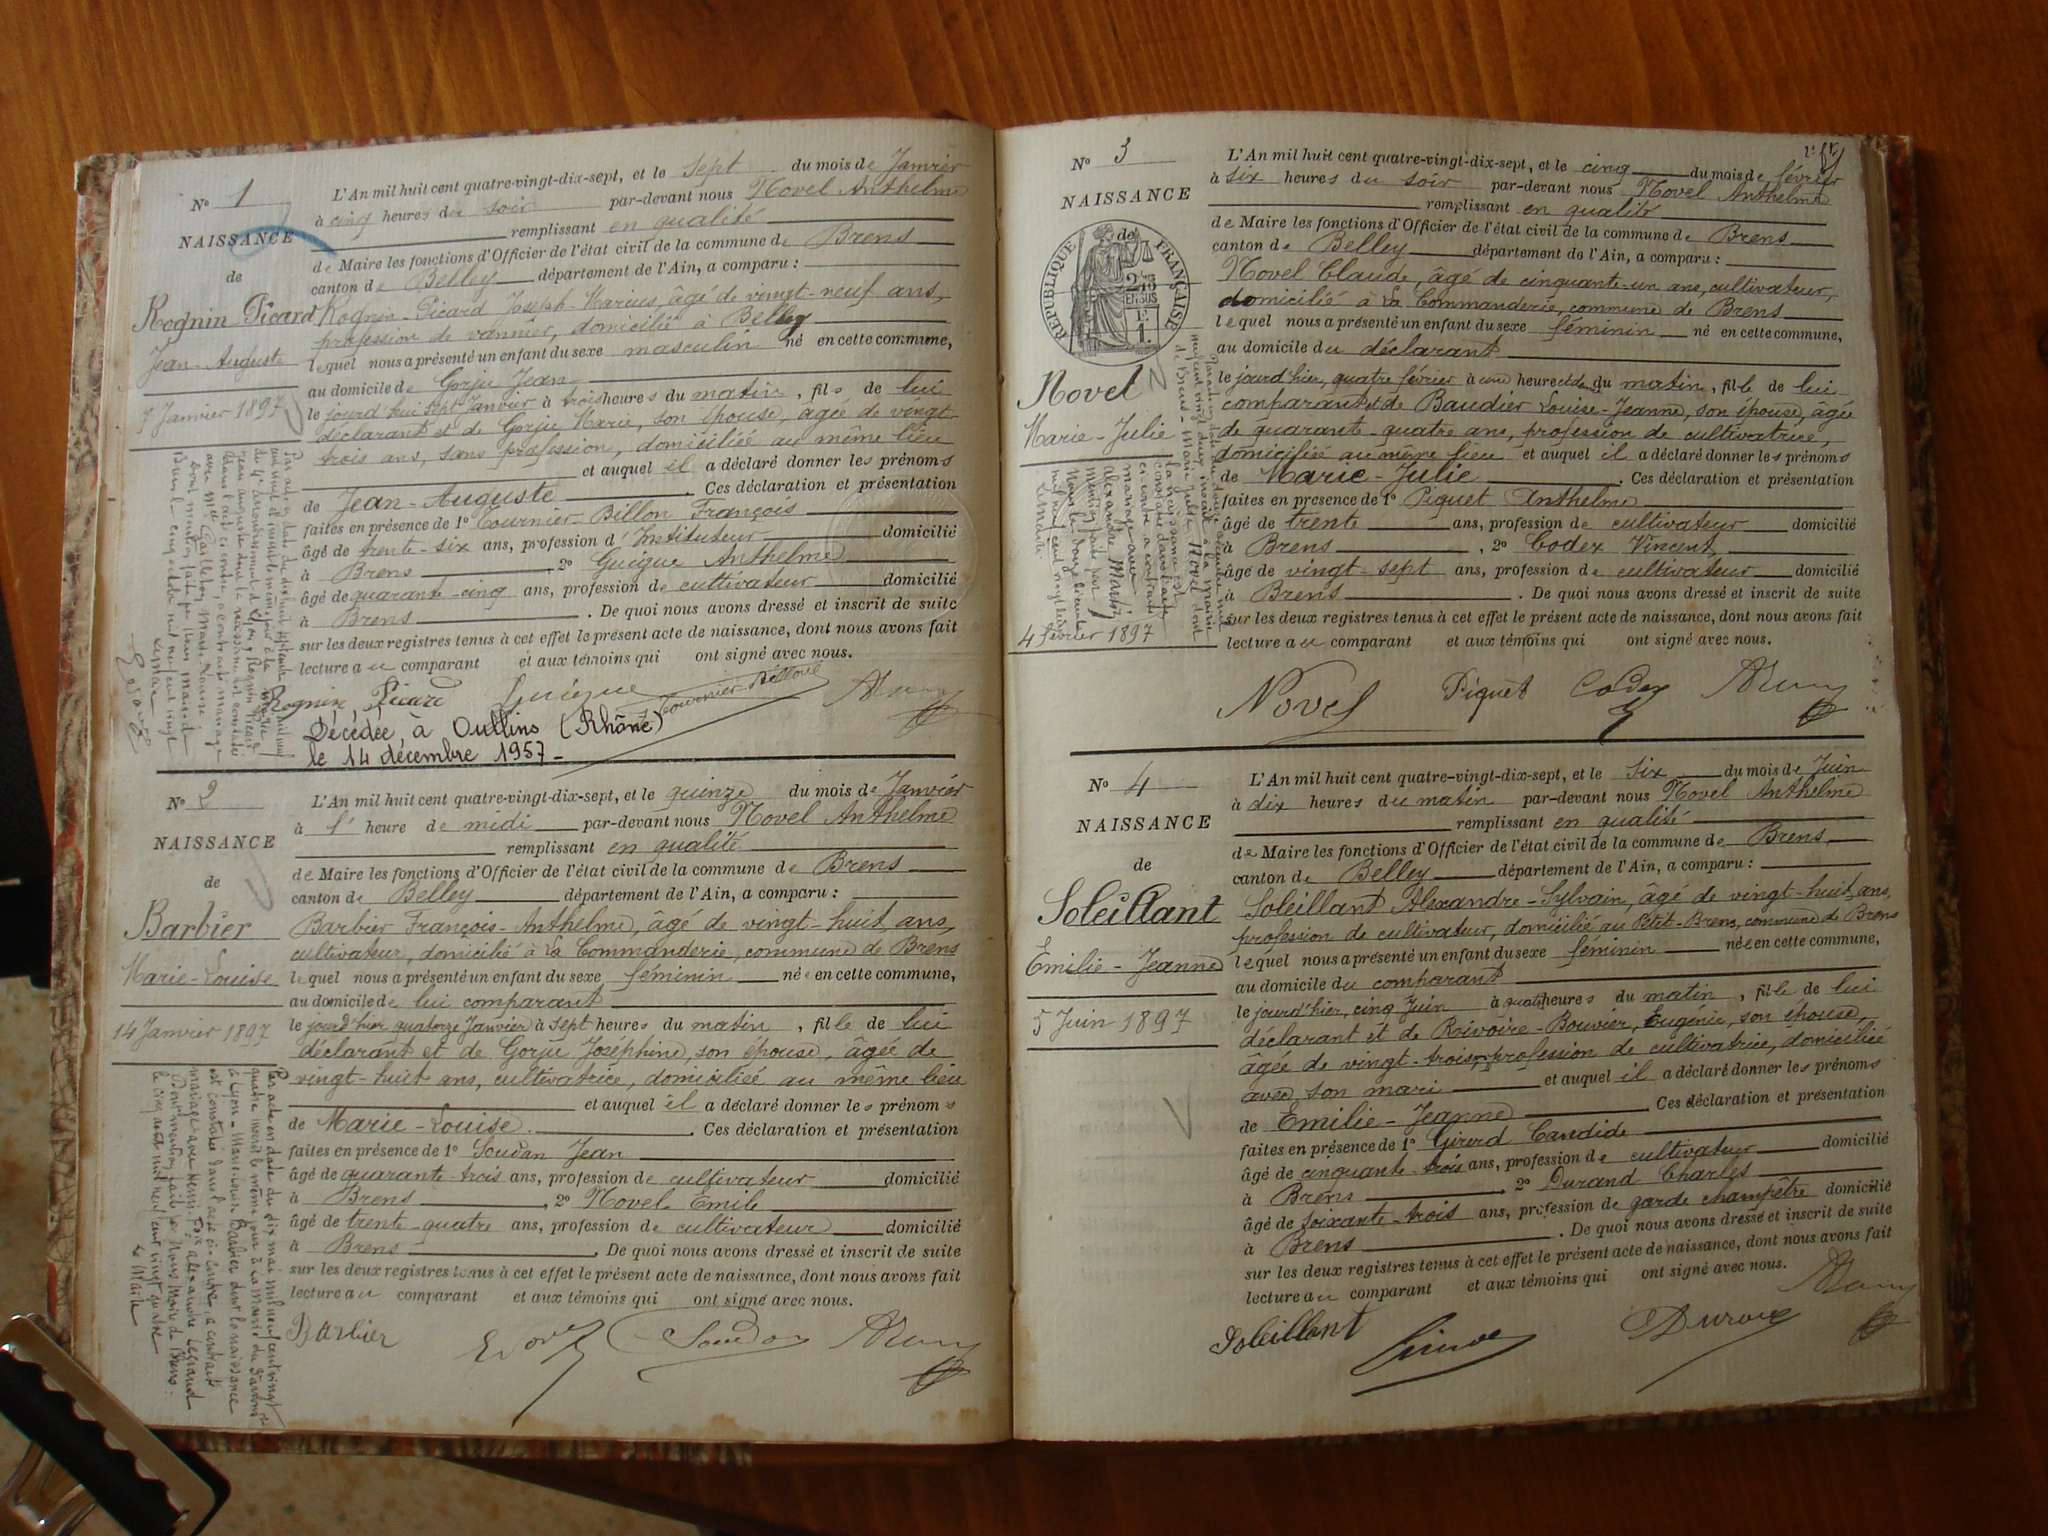 N° 1
NAISSANCE
de
Rognin Picard
Jean-Auguste
7 Janvier 1897
L'An mil huit cent quatre-vingt-dix-sept, et le sept du mois de Janvier
à cinq heures du soir par-devant nous Novel Anthelme
remplissant en qualité
de Maire les fonctions d'Officier de l'état civil de la commune de Brens
canton de Belley département de l'Ain, a comparu :
Rognin-Picard Joseph-Marius, âgé de vingt-neuf ans,
profession de vannier, domicilié à Belley
lequel nous a présenté un enfant du sexe masculin né en cette commune,
au domicile de Gorju Jean
le jourd'hui sept Janvier à trois heures du matin, fils de lui
déclarant et de Gorju Marie, son épouse, âgée de vingt-
trois ans, sans profession, domiciliée au même lieu
et auquel il a déclaré donner les prénoms
de Jean-Auguste. Ces déclaration et présentation
faites en présence de 1° Tournier-Billon François
âgé de trente-six ans, profession d'Instituteur domicilié
à Brens, 2° Guigue Anthelme
âgé de quarante-cinq ans, profession de cultivateur domicilié
à Brens. De quoi nous avons dressé et inscrit de suite
sur les deux registres tenus à cet effet le présent acte de naissance, dont nous avons fait
lecture au comparant et aux témoins qui ont signé avec nous.
Rognin Picard Guigue Tournier-Billon
Décédée à Oullins (Rhône)
le 14 décembre 1957
N° 2
NAISSANCE
de
Barbier
Marie-Louise
14 Janvier 1897
L'An mil huit cent quatre-vingt-dix-sept, et le quinze du mois de Janvier
à l' heure de midi par-devant nous Novel Anthelme
remplissant en qualité
de Maire les fonctions d'Officier de l'état civil de la commune de Brens
canton de Belley département de l'Ain, a comparu :
Barbier François-Anthelme, âgé de vingt-huit ans,
cultivateur, domicilié à La Commanderie, commune de Brens
lequel nous a présenté un enfant du sexe féminin née en cette commune,
au domicile de lui comparant
le jourd'hier quatorze Janvier à sept heures du matin, fille de lui
déclarant et de Gorju Joséphine, son épouse, âgée de
vingt-huit ans, cultivatrice, domiciliée au même lieu
et auquel il a déclaré donner les prénoms
de Marie-Louise. Ces déclaration et présentation
faites en présence de 1° Soudan Jean
âgé de quarante-trois ans, profession de cultivateur domicilié
à Brens, 2° Novel Emile
âgé de trente-quatre ans, profession de cultivateur domicilié
à Brens. De quoi nous avons dressé et inscrit de suite
sur les deux registres tenus à cet effet le présent acte de naissance, dont nous avons fait
lecture au comparant et aux témoins qui ont signé avec nous.
Barbier Soudan
Par acte en date du dix mai mil neuf cent vingt
est contracté mariage avec Henri
le Maire
N° 3
NAISSANCE
de
REPUBLIQUE FRANÇAISE
Novel
Marie-Julie
4 février 1897
L'An mil huit cent quatre-vingt-dix-sept, et le cinq du mois de février
à six heures du soir par-devant nous Novel Anthelme
remplissant en qualité
de Maire les fonctions d'Officier de l'état civil de la commune de Brens
canton de Belley département de l'Ain, a comparu :
Novel Claude, âgé de cinquante-un ans, cultivateur,
domicilié à La Commanderie, commune de Brens
lequel nous a présenté un enfant du sexe féminin né en cette commune,
au domicile du déclarant
le jourd'hier, quatre février à une heure du matin, fille de lui
comparant et de Baudier Louise-Jeanne, son épouse, âgée
de quarante-quatre ans, profession de cultivatrice,
domiciliée au même lieu et auquel il a déclaré donner les prénoms
de Marie-Julie. Ces déclaration et présentation
faites en présence de 1° Piquet Anthelme
âgé de trente ans, profession de cultivateur domicilié
à Brens, 2° Codex Vincent
âgé de vingt-sept ans, profession de cultivateur domicilié
à Brens. De quoi nous avons dressé et inscrit de suite
sur les deux registres tenus à cet effet le présent acte de naissance, dont nous avons fait
lecture au comparant et aux témoins qui ont signé avec nous.
Novel Piquet Codex
N° 4
NAISSANCE
de
Soleillant
Emilie-Jeanne
5 Juin 1897
L'An mil huit cent quatre-vingt-dix-sept, et le six du mois de Juin
à dix heures du matin par-devant nous Novel Anthelme
remplissant en qualité
de Maire les fonctions d'Officier de l'état civil de la commune de Brens
canton de Belley département de l'Ain, a comparu :
Soleillant Alexandre-Sylvain, âgé de vingt-huit ans,
profession de cultivateur, domicilié au Petit-Brens, commune de Brens
lequel nous a présenté un enfant du sexe féminin née en cette commune,
au domicile du comparant
le jourd'hier, cinq Juin à quatre heures du matin, fille de lui
déclarant et de Rivoire-Bouvier, Eugénie, son épouse,
âgée de vingt-trois, profession de cultivatrice, domiciliée
avec son mari et auquel il a déclaré donner les prénoms
de Emilie-Jeanne. Ces déclaration et présentation
faites en présence de 1° Girerd Candide
âgé de cinquante-trois ans, profession de cultivateur domicilié
à Brens, 2° Durand Charles
âgé de soixante-trois ans, profession de garde champêtre domicilié
à Brens. De quoi nous avons dressé et inscrit de suite
sur les deux registres tenus à cet effet le présent acte de naissance, dont nous avons fait
lecture au comparant et aux témoins qui ont signé avec nous.
Soleillant